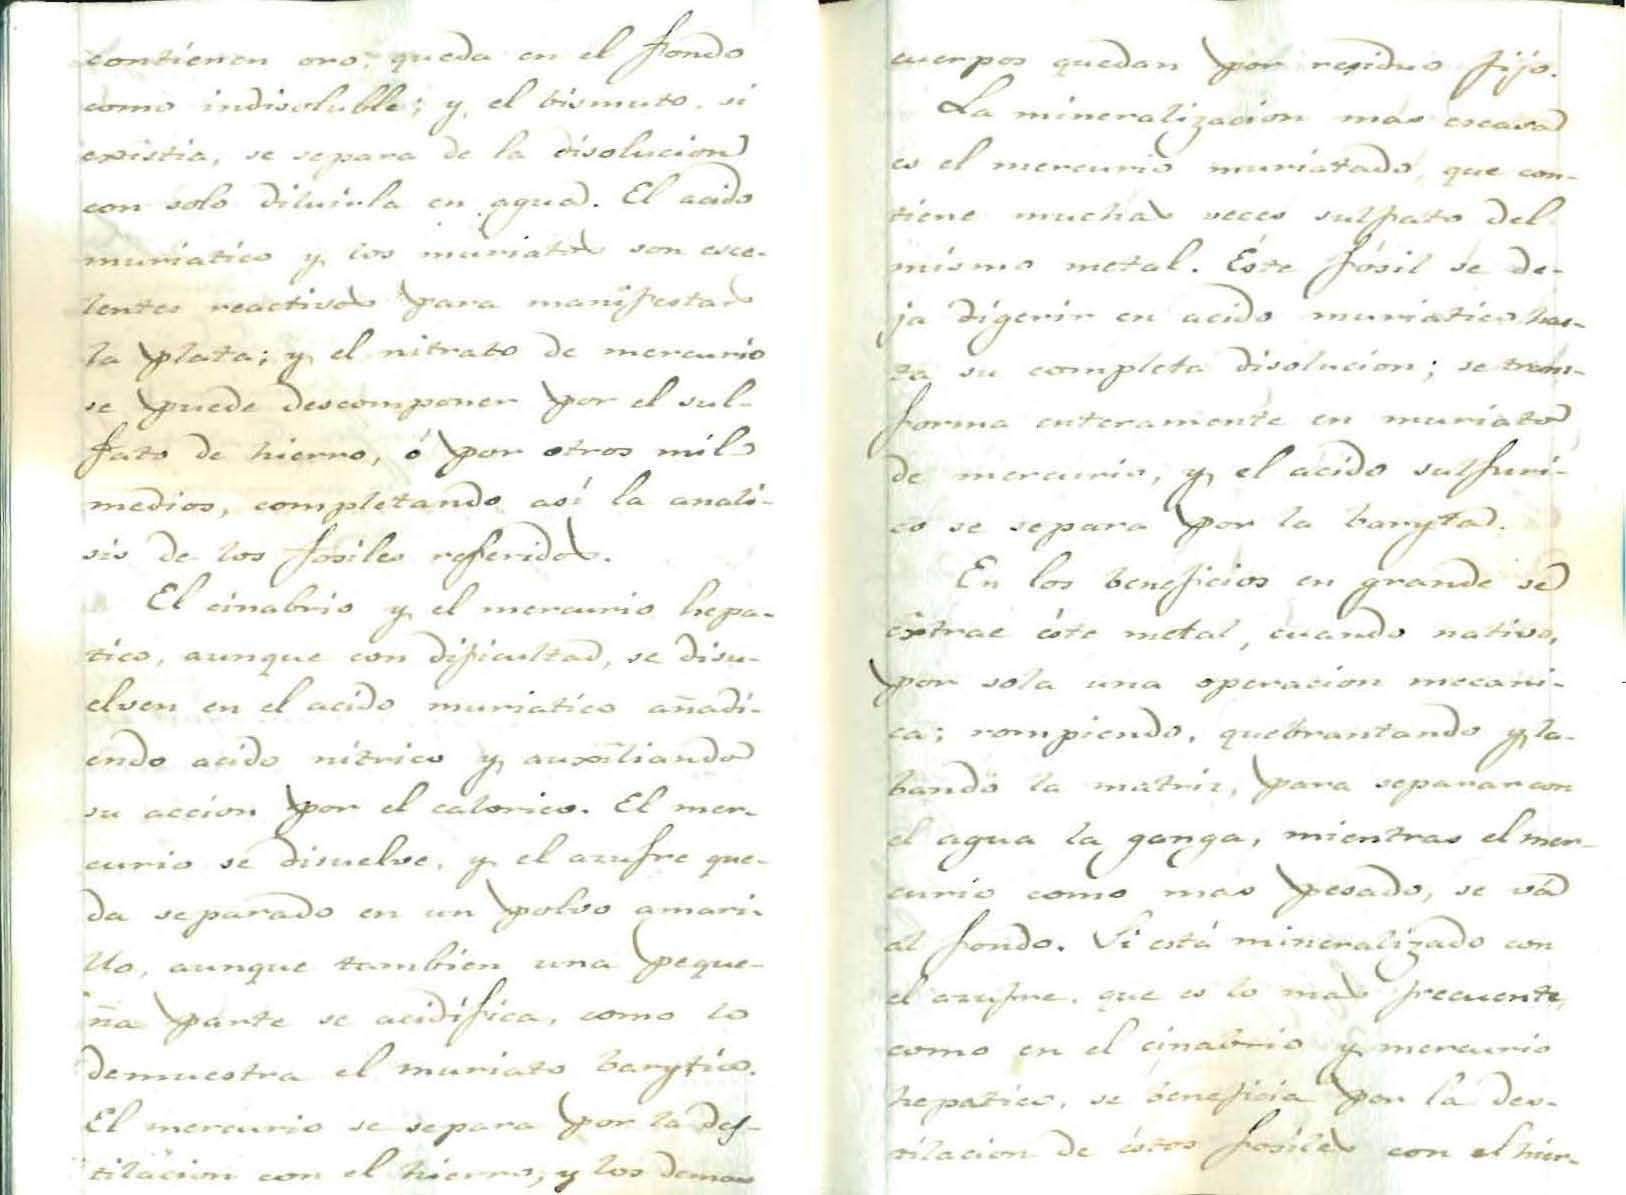 contienen oro, queda en el fondo
como indisoluble; y, el bismuto, si
existia, se separa de la disolucion
con solo diluirla en agua. El acido
muriatico y los muriatos son esce-
lentes reactivos para manifestar
la plata; y el nitrato de mercurio
se puede descomponer por el sul-
fato de hierro, ó por otros mil
medios, completando así la analí-
sis de los fosiles referidos.
El cinabrio y el mercurio hepa-
tico, aunque con dificultad, se disu-
elven en el acido muriatico añadi-
endo acido nitrico y auxiliando
su accion por el calorico. El mer-
curio se disuelve, y el azufre que-
da separado en un polvo amari-
llo, aunque tambien una peque-
ña parte se acidifica, como lo
demuestra el muriato barytico.
El mercurio se separa por la des-
tilacion con el hierro, y los demas
cuerpos quedan por residuo fijo.
La mineralizacion mas escasa
es el mercurio muriatado, que con-
tiene muchas veces sulfato del
mismo metal. Éste fósil se de-
ja digerir en acido muriatico has-
ta su completa disolucion; se trans-
forma enteramente en muriato
de mercurio, y el acido sulfuri-
co se separa por la baryta.
En los beneficios en grande se
extrae éste metal, cuando nativo,
por sola una operacion mecani-
ca; rompiendo, quebrantando y la-
bando la matriz, para separar con
el agua la ganga, mientras el mer-
curio como mas pesado, se vá
al fondo. Si está mineralizado con
el azufre, que es lo mas frecuente,
como en el cinabrio y mercurio
hepatico, se beneficia por la des-
tilacion de éstos fosiles con el hier-